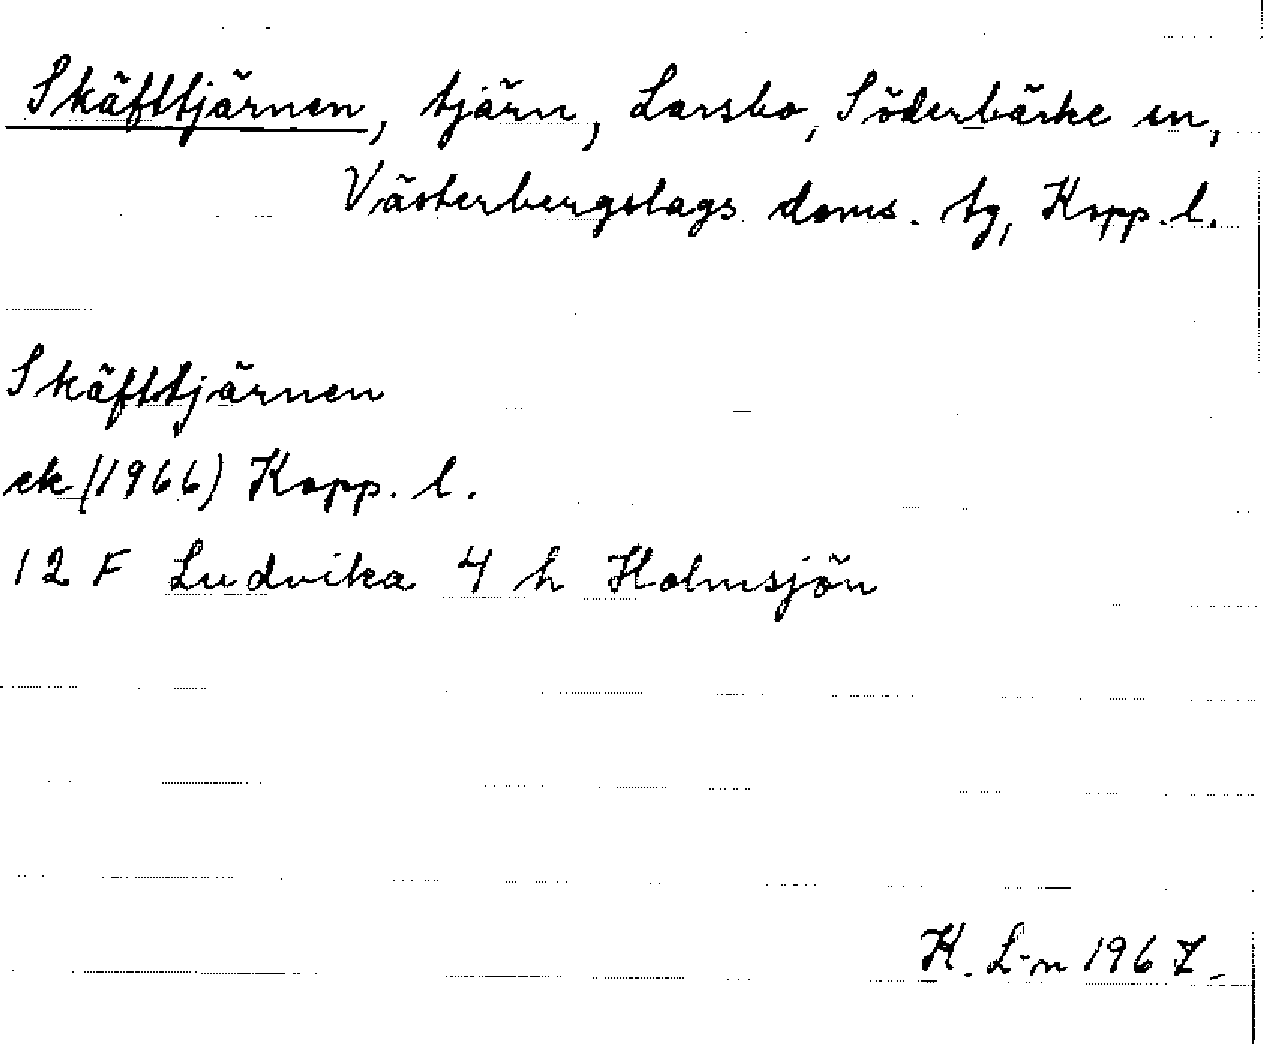 Skäfttjärnen, tjärn, Larsbo, Söderbärke sn,
Västerbergslags doms. tg, Kopp. l.
Skäfttjärnen
ek (1966) Kopp. l.
12 F Ludvika 4 h Holmsjön
K. L-n 1967